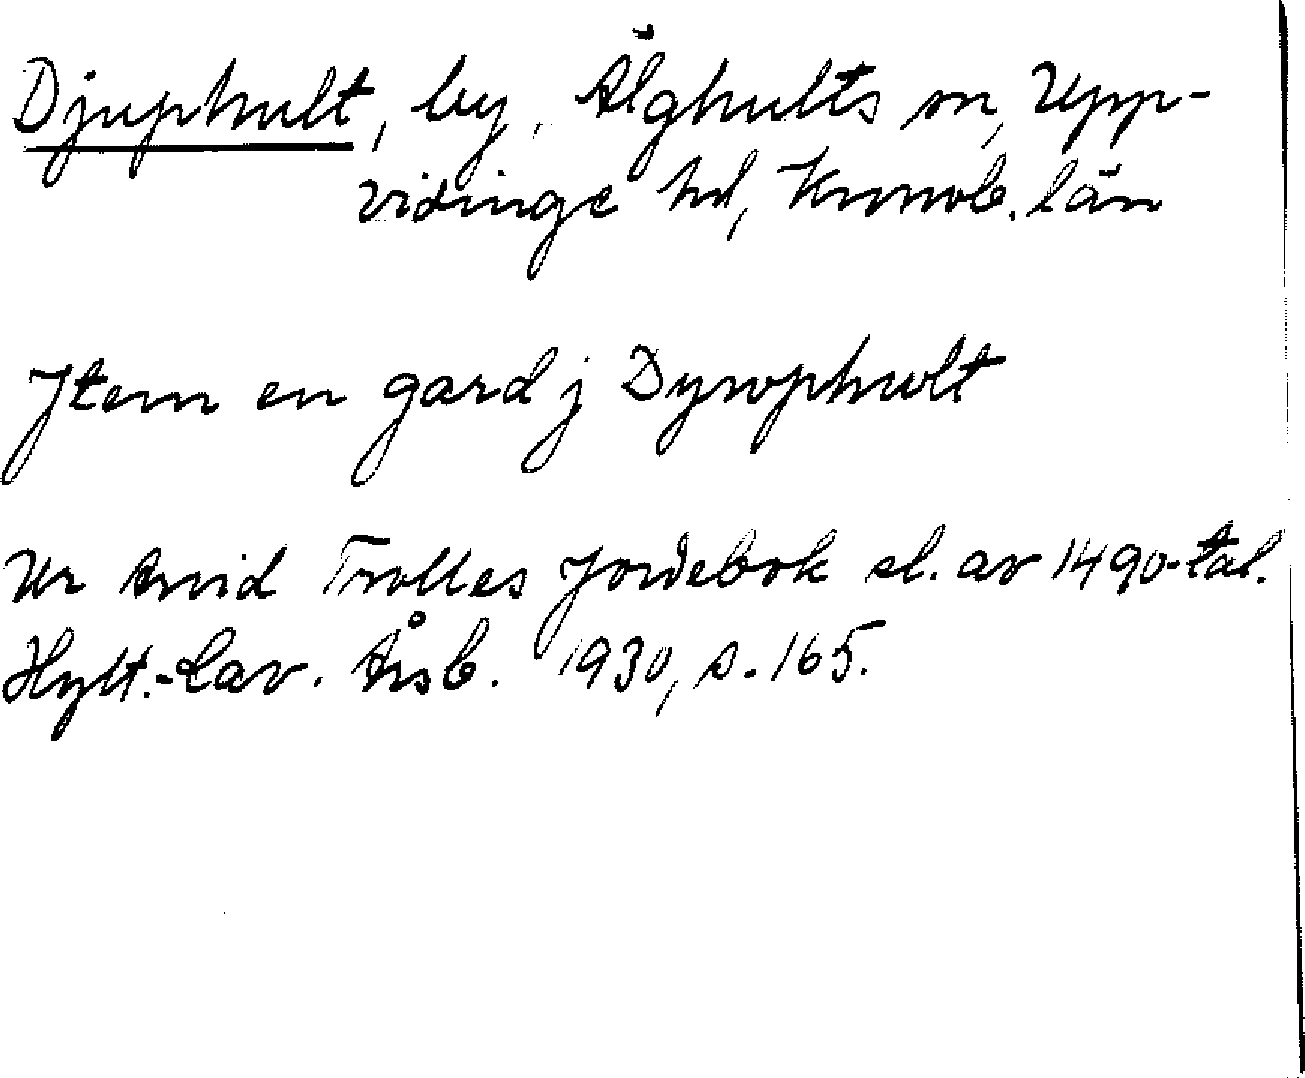 Djuphult, by, Älghults sn, Upp-
vidinge hd, Kronob. län
Jtem en gard j Dywphwlt
Ur Arvid Trolles Jordebok sl. av 1490-tal.
Hylt.-Cav. Årsb. 1930, s. 165.